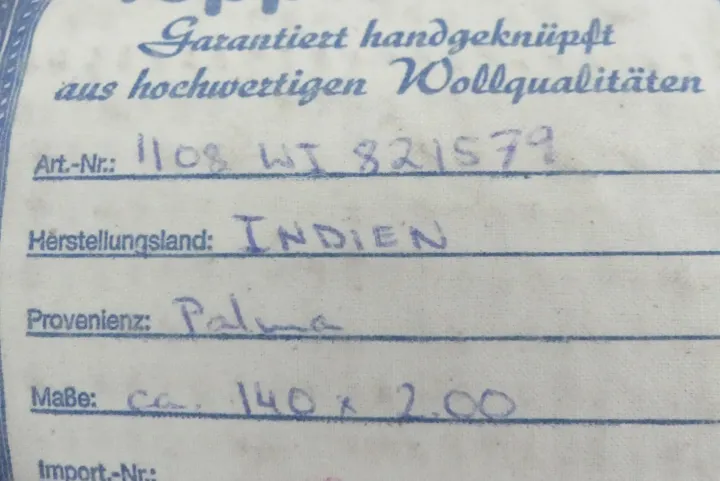 Garantiert handgeknüpft
aus hochwertigen Wollqualitäten
Art.-Nr.: 1108 WI 821579
Herstellungsland: INDIEN
Provenienz: Palma
Maße: ca. 140 x 2.00
Import.-Nr.: